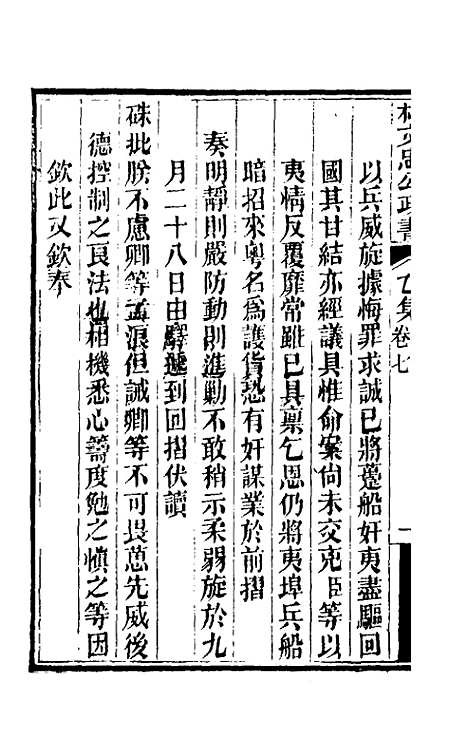 林文忠公政書 乙集卷七 一
以兵威旋據悔罪求誠已將躉船奸夷盡驅回
國其甘結亦經議具惟命案尙未交兇臣等以
夷情反覆靡常雖已具稟乞恩仍將夷埠兵船
暗招來粵名爲護貨恐有奸謀業於前摺
奏明靜則嚴防動則進勦不敢稍示柔弱旋於九
月二十八日由驛遞到回摺伏讀
硃批朕不慮卿等孟浪但誡卿等不可畏葸先威後
德控制之良法也相機悉心籌度勉之愼之等因
欽此又欽奉